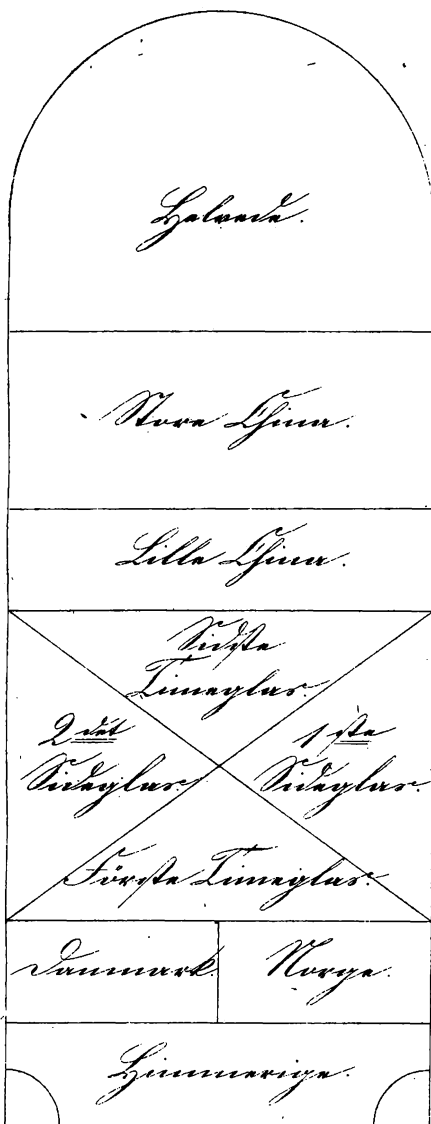 Helvede.
Store China.
Lille China.
Sidste
Timeglas.
2det
Sideglas.
1ste
Sideglas.
Förste Timeglas.
Danmark.
Norge.
Himmerige.